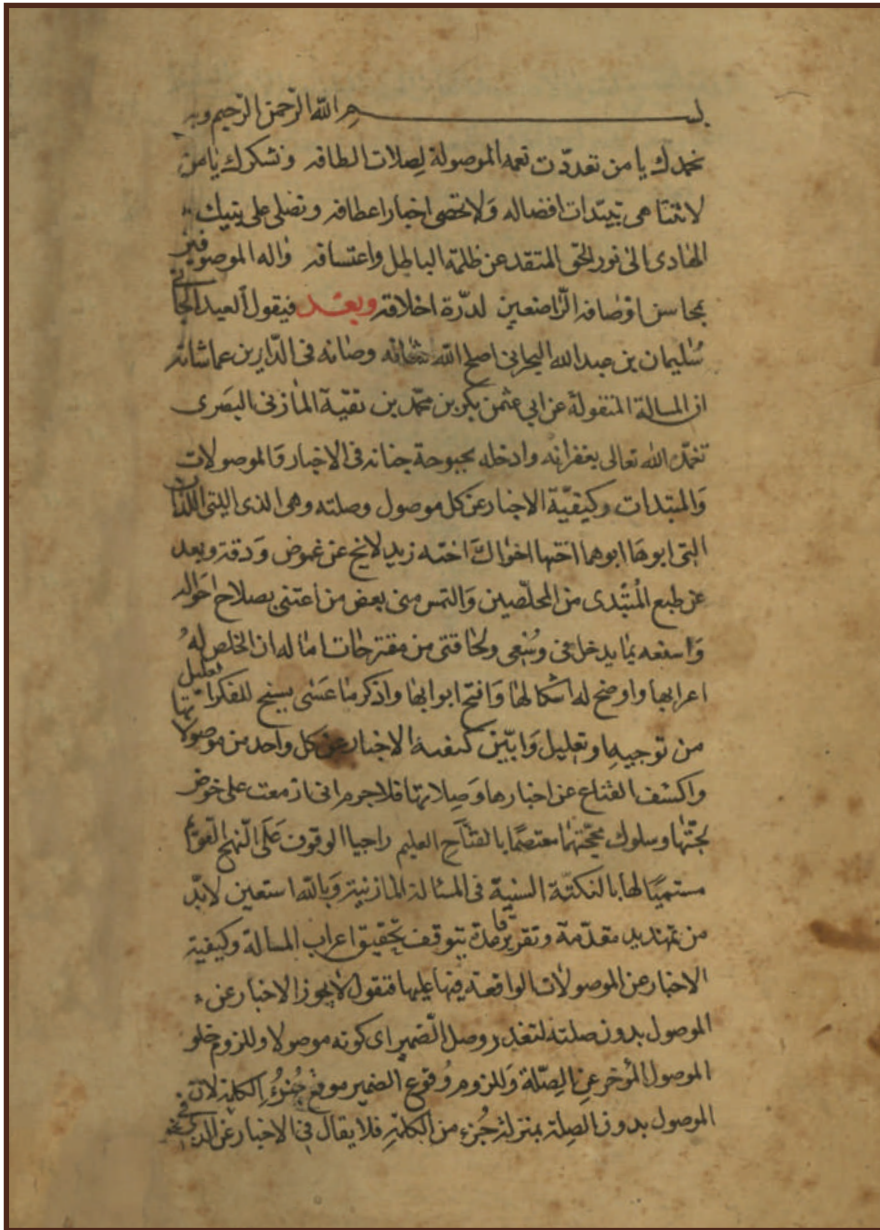 بسم الله الرحمن الرحيم وبه
نحمدك يا من تعددت نعمه الموصولة لصلات الطافه ونشكرك يا من
لا تتناهى مبتدات افضاله ولا تحصى اخبار اعطافه ونصلى على نبيك
الهادى الى نور الحق المنقذ عن ظلمة الباطل واعتسافه واله الموصوفين
بمحاسن اوصافه الراضعين لدرة اخلاقه وبعد فيقول العبد الجانى
سليمان بن عبد الله البحرانى اصلح الله شانه وصانه فى الدارين عما شانه
ان المسالة المنقولة عن ابى عثمن بكر بن محمد بن تقية المازنى البصرى
تغمده الله تعالى بغفرانه وادخله بحبوحة جنانه فى الاخبار والموصولات
والمبتدات وكيفية الاخبار عن كل موصول وصلته وهى الذى التى اللذان
التى ابوها ابوهما اختها اخواك اخته زيد لا تخ عن غموض ودقة وبعد
عن طبع المبتدى من المحلصين والتمس منى بعض من اعتنى بصلاح احواله
واسعفه بما يدخل فى وسعى ولحاقتى من مقترحات اماله ان الخلص له
اعرابها واوضح له اشكالها وافتح ابوابها واذكر ما عسى يسنح للفكر تعليل
من توجيه وتعليل وابين كيفية الاخبار عن كل واحد من موصولاتها
واكشف القناع عن اخبارها وصلاتها فلا جرم انى ازمعت على خوض
لجتها وسلوك محجتها معتصما بالفتاح العليم راجيا الوقوف على النهج القويم
مستميا لها بالنكتة السنية فى المسالة المازنية وبالله استعين لابد
من تمهيد مقدمة وتقرير قاعدة يتوقف تحقيق اعراب المسالة وكيفية
الاخبار عن الموصولات الواقعة فيها عليها فنقول لا يجوز الاخبار عن
الموصول بدون صلته لتعذر وصل الضمير اى كونه موصولا وللزوم خلو
الموصول المؤخر عن الصلة وللزوم وقوع الضمير موقع جزء الكلمة لان
الموصول بدون الصلة بمنزلة جزء من الكلمة فلا يقال فى الاخبار عن الذى